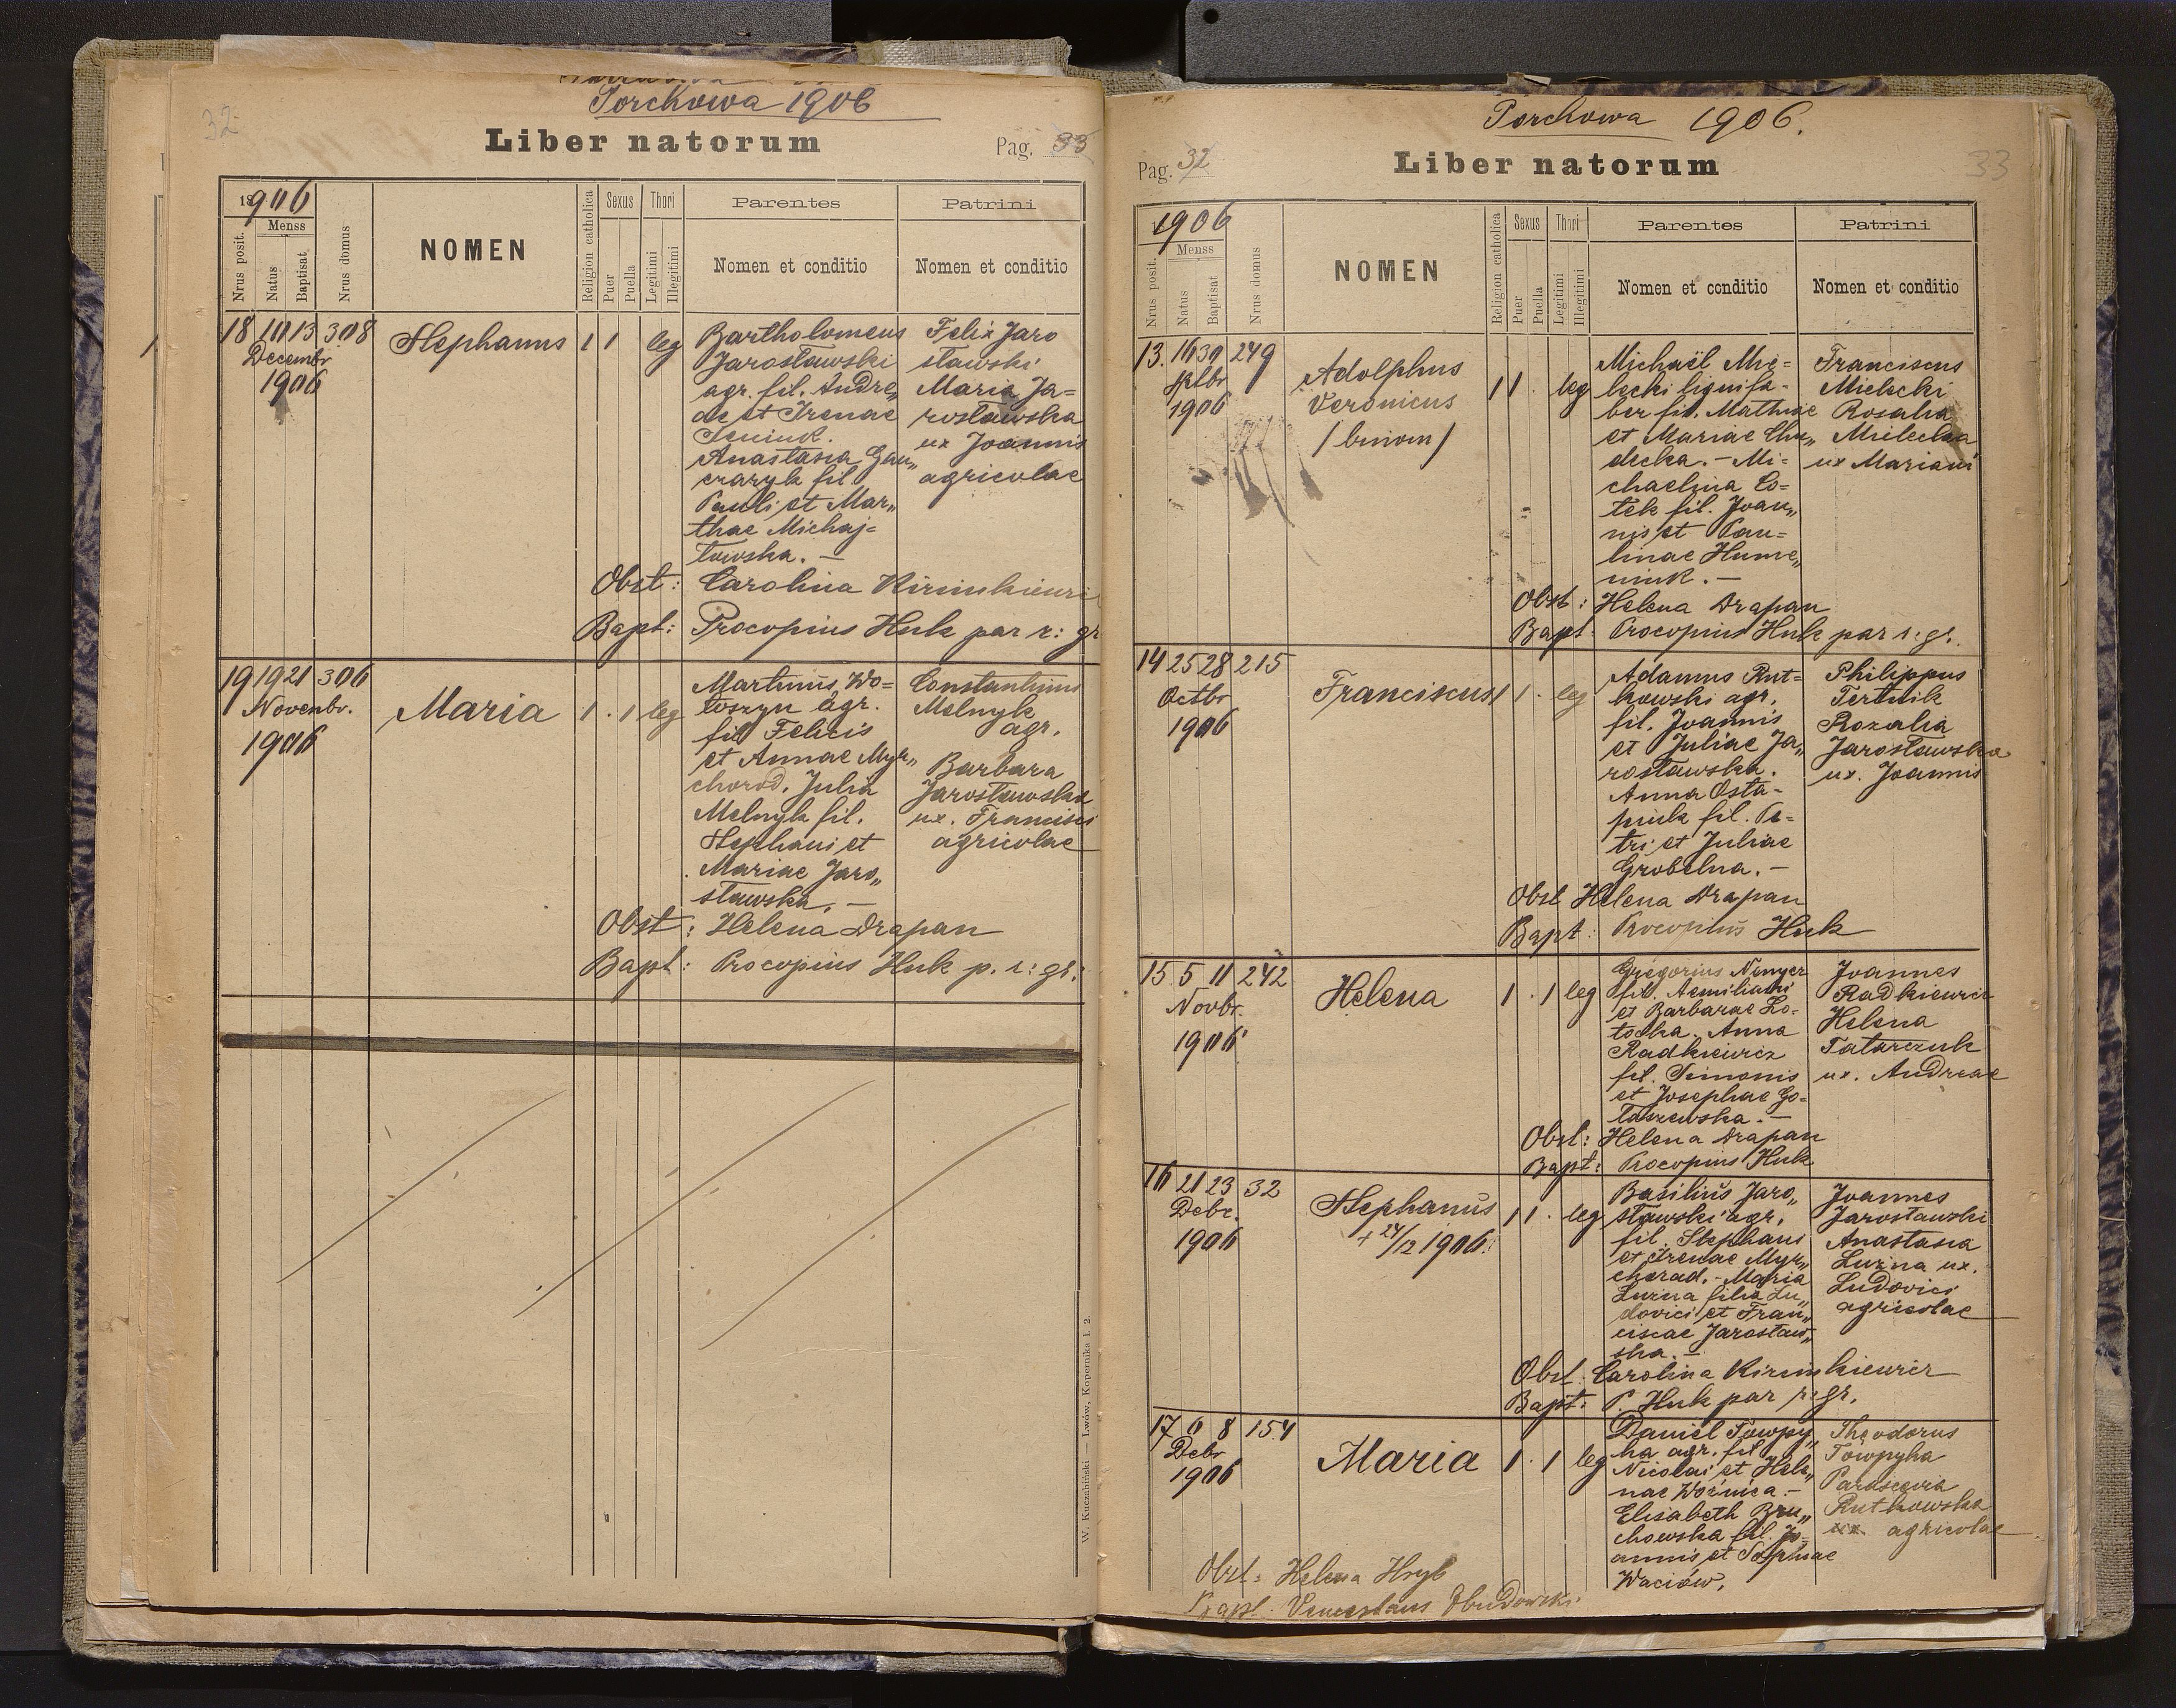 Torchowa 1906
32
Liber natorum
Pag. 33
1906
Nrus posit.
Menss
Natus
Baptisat.
Nrus domus
NOMEN
Religion catholica
Sexus
Puer
Puella
Thori
Legitimi
Illegitimi
Parentes
Nomen et conditio
Patrini
Nomen et conditio
18 10 13 308
Decembr.
1906
Stephanus
1 1 leg
Bartholomeus
Jarosławski
agr. fil. Andre„
ae et Irenae
Anastasia Gan„
czaryk fil.
Pauli et Mar„
thae Michaj=
łowska. —
Felix Jaro
sławski
Maria Ja=
rosławska
ux Joannis
agricolae
Obst: Carolina
Bapt: Procopius Huk par r: gr
19 19 21 306
Novenbr.
1906
Maria
1 . 1 leg
Martinus Wo=
łoszyn agr.
fil Felicis
et Annae Myk„
chorod. Julia
Melnyk fil.
Stephani et
Mariae Jaro„
sławska. —
Constantinus
Melnyk
agr.
Barbara
Jarosławska
ux. Francisci
agricolae
Obst: Helena Drapan
Bapt: Procopius Huk p. r: gr:
W. Kuczabiński — Lwów, Kopernika l. 2.
Torchowa 1906.
Pag. 32
Liber natorum
33
1906
Nrus posit.
Menss
Natus
Baptisat
Nrus domus
NOMEN
Religion catholica
Sexus
Puer
Puella
Thori
Legitimi
Illegitimi
Parentes
Nomen et conditio
Patrini
Nomen et conditio
13. 16 30 249
1906
Adolphus
Veronicus
/binom/
1 1 . leg
Michaël Mie=
lecki lignifa-
ber fil. Mathiae
et Mariae Chu„
decka. - Mi=
chaelina Co=
tek fil. Joan„
nis et Pau=
linae Hume„
niuk. —
Franciscus
Mielecki
Rosalia
Mielecka
ux Mariani
Obst: Helena Drapan
Bapt. Procopius Huk par r: gr.
14 25 28 215
Octbr
1906
Franciscus
1 1 . leg
Adamus Rut=
kowski agr.
fil. Joannis
et Juliae Ja„
rosławska.
Anna Osta-
piuk fil. Pe=
tri et Juliae
Grobelna. —
Philippus
Rozalia
Jarosławska
ux. Joannis
Obst Helena Drapan
Bapt: Procopius Huk
15 5 11 242
Novbr.
1906
Helena
1 . 1 leg
Gregorius
fil. Aemiliani
et Barbarae Ło-
tocka. Anna
Radkiewicz
fil. Simonis
et Josephae Go=
łaszewska. —
Joannes
Radkiewicz
Helena
Tatarczuk
ux. Andreae
Obst: Helena Drapan
Bapt: Procopius Huk
16 21 23 32
Debr.
1906
Stephanus
+ 24/12 1906.
1 1 . leg
Basilius Jaro„
sławski agr.
fil. Stephani
et Irenae Myk„
chorad. - Maria
Luzna filia Lu„
dovici et Fran„
ciscae Jarosław„
ska. —
Joannes
Jarosławski
Anastasia
Luzna ux.
Ludovici
agricolae
Obst. Carolina
Bapt: P. Huk par r: gr.
17 6 8 154
Debr
1906
Maria
1 . 1 leg
Daniel Towpy„
ha agr. fil
Nicolai et Hele„
nae Woźnica. —
Elisabeth Bru„
chowska fil. Jo-
annis et Sophiae
Waciów.
Theodorus
Towpyha
Parascevia
Rutkowska
ux agricolae
Obst: Helena Hryb
Bapt. Venceslaus Obudowski